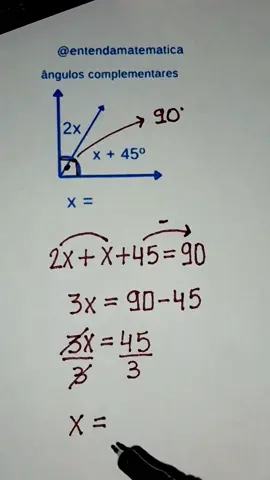 @entendamatematica
ângulos complementares
2x
90°
x + 45º
x =
2x + x + 45 = 90
−
3x = 90 − 45
3x = 45
3 3
x =